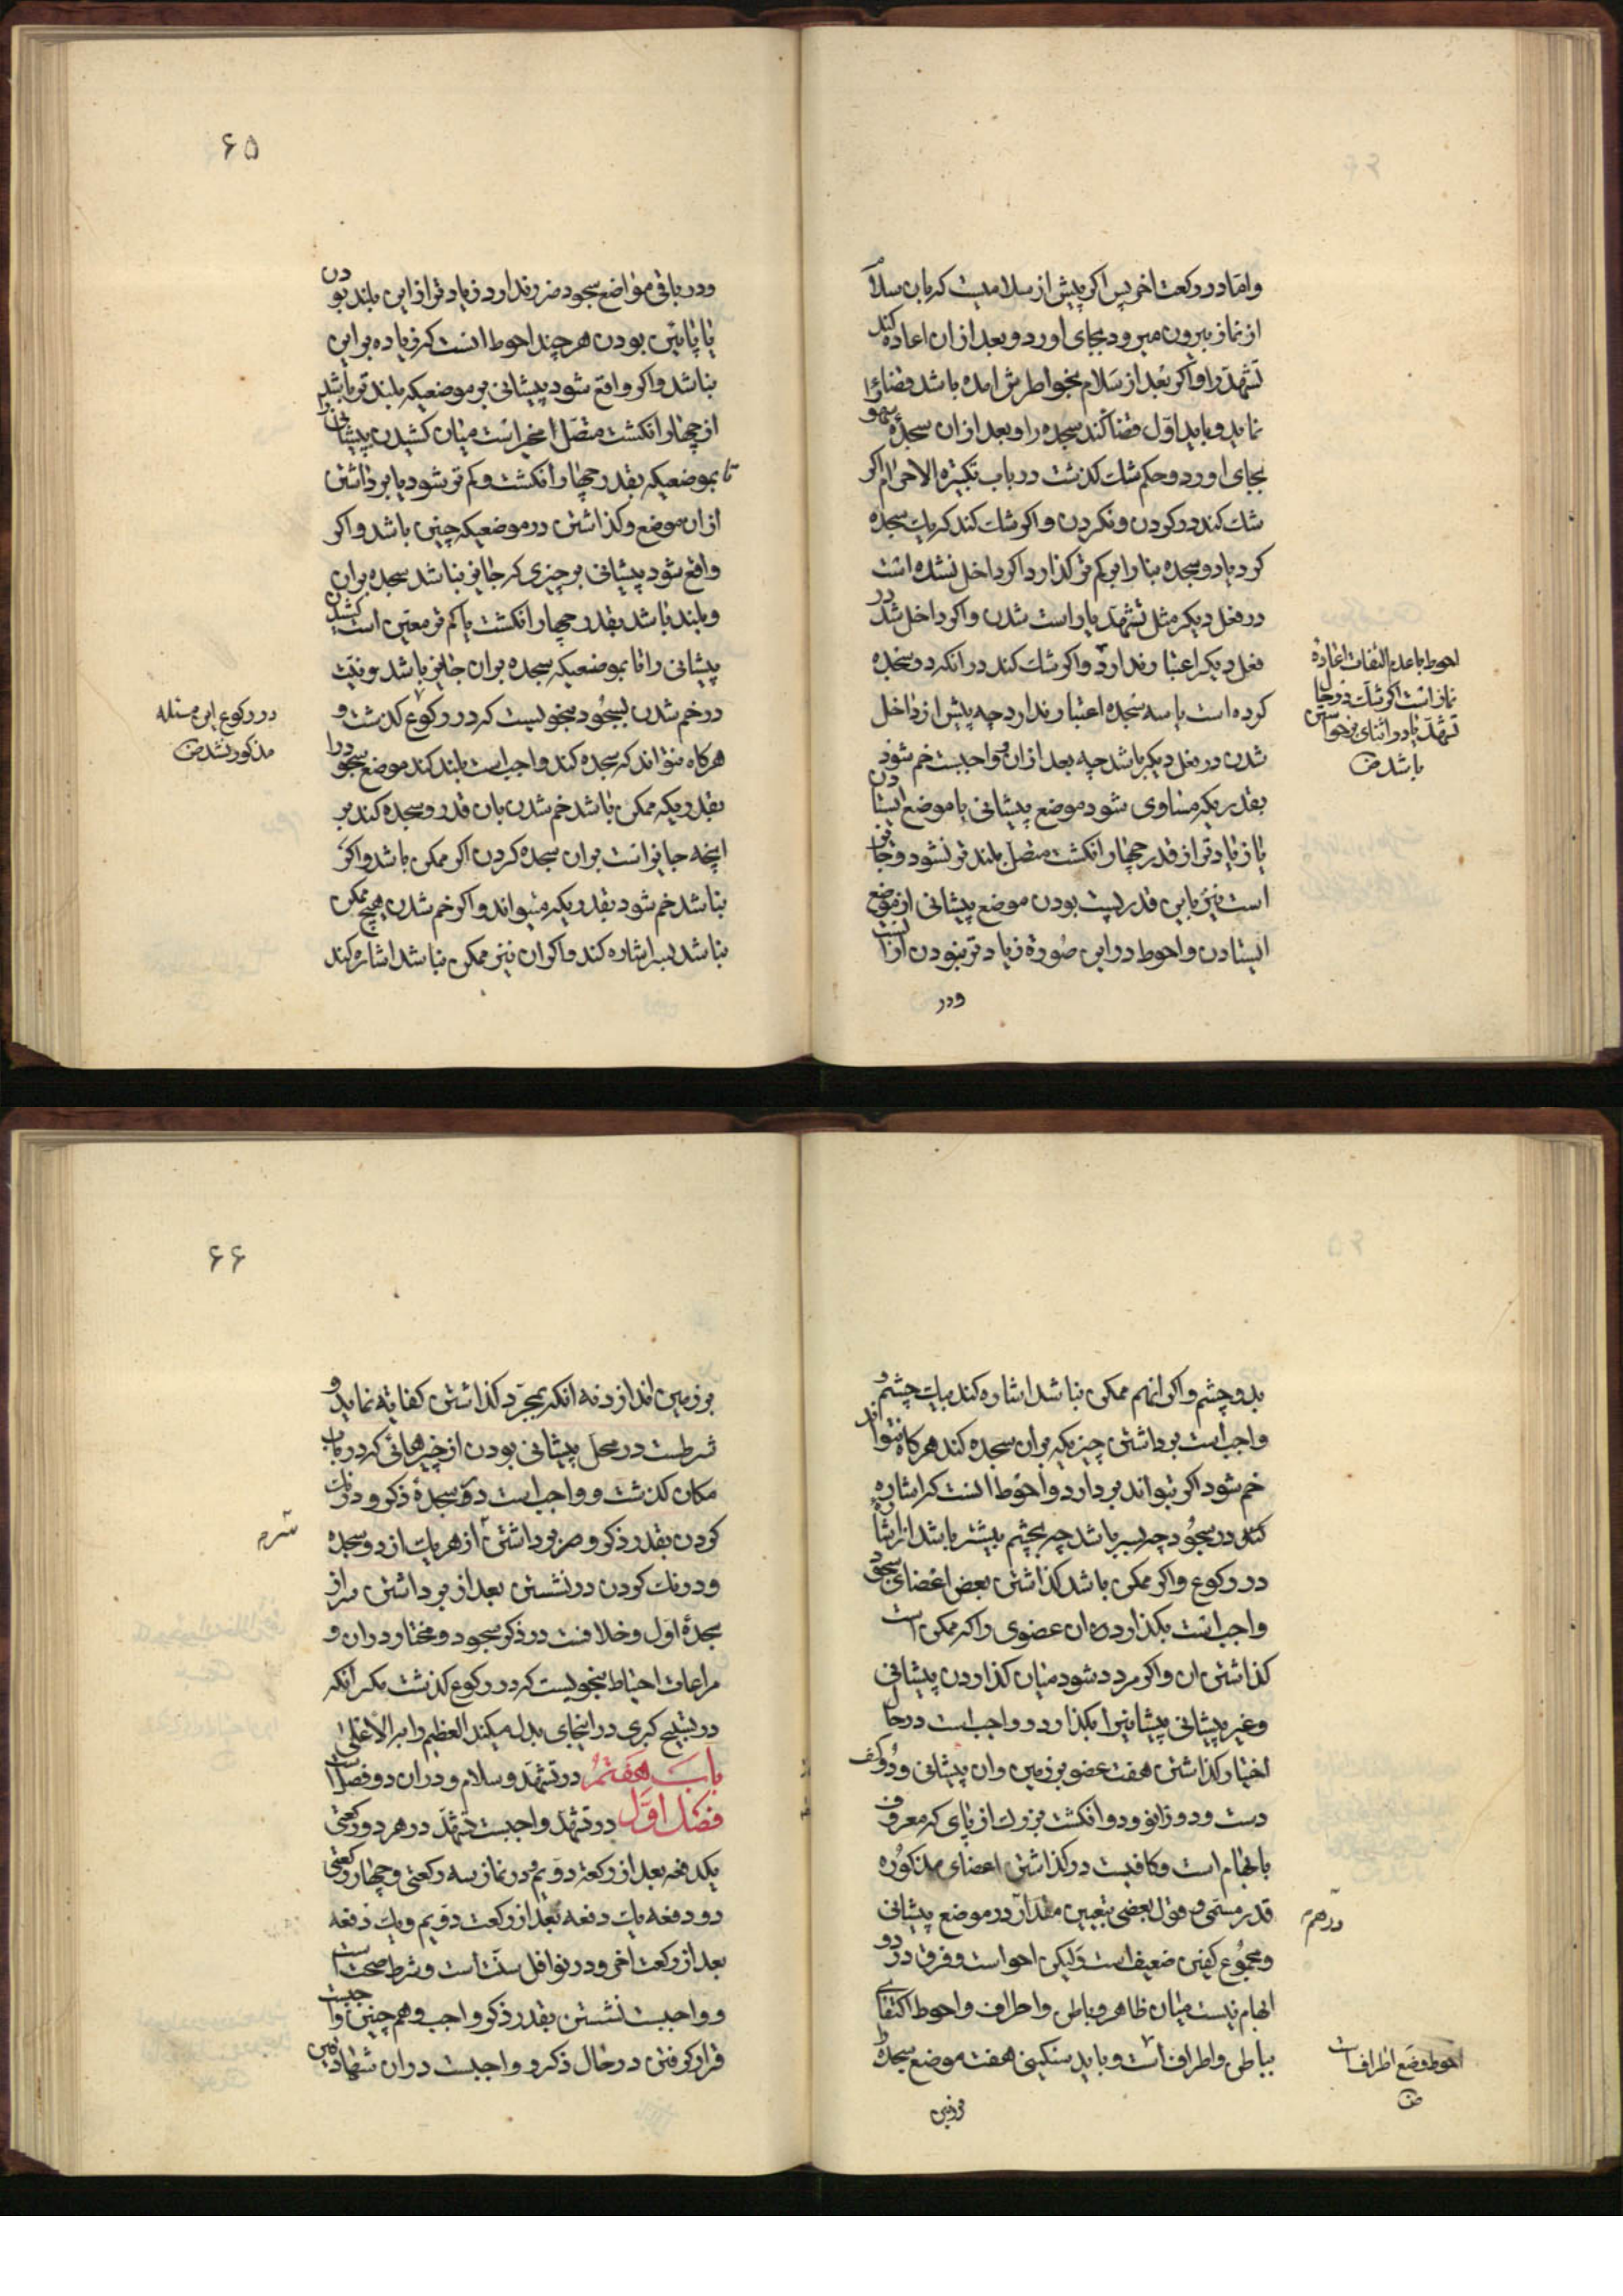 واما در رکعت اخر پس اکر پیش از سلامیست که بان سلام
از نماز بیرون میرود بجای اورد و بعد از ان اعاده کند
تشهد را و اکر بعد از سلام بخواطرش امده باشد قضا
نماید و باید اول قضا کند سجده را و بعد از ان سجدهٔ سهو
بجای اورد و حکم شك کذشت در باب تکبیرة الاحرام اکر
شك کند در کردن و نکردن و اکر شك کند که یك سجده
کرد یا دو سجده بنا را بر کم تر کذارد اکر داخل نشده است
در فعل دیکر مثل تشهد یا راست شدن و اکر داخل شد در
فعل دیکر اعتبار ندارد و اکر شك کند در انکه دو سجده
کرده است یا سه سجده اعتبار ندارد چه پیش از داخل
شدن در فعل دیکر باشد چه بعد از ان و واجبست خم شود
بقدریکه مساوی شود موضع پیشانی با موضع ایستادن
یا زیادتر از قدر چهار انکشت متصل بلند تر نشود و جایز
است نیز باین قدر پست بودن موضع پیشانی از موضع
ایستادن و احوط در این صورة زیادتر نبودن از انست
ودر
احوط با عدم التفات اعادهٔ
نماز است اکر شك در حال
تشهد یا در اثنای برخواستن
باشد
۶۵
ودر باقی مواضع سجود ضرر ندارد زیادتر از این بلند بودن
یا پائین بودن هر چند احوط انست که زیاده بر این
نباشد و اکر واقع شود پیشانی بر موضعیکه بلند تر باشد
از چهار انکشت متصل مخیر است میان کشیدن پیشانی
تا بموضعیکه بقدر چهار انکشت و کم تر شود یا برداشتن
از ان موضع و کذاشتن در موضعیکه چنین باشد و اکر
واقع شود پیشانی بر چیزی که جایز نباشد سجده بران
و بلند باشد بقدر چهار انکشت یا کم تر معین است کشیدن
پیشانی را تا بموضعیکه سجده بران جایز باشد و نیت
در خم شدن لسجود بنحویست که در رکوع کذشت و
هرکاه نتواند که سجده کند واجب است بلند کند موضع سجود را
بقدریکه ممکن باشد خم شدن بان قدر و سجده کند بر
انچه جایز است بران سجده کردن اکر ممکن باشد و اکر
نباشد خم شود بقدریکه میتواند و اکر خم شدن هیچ ممکن
نباشد بسر اشاره کند و اکر ان نیز ممکن نباشد اشاره کند
در رکوع این مسئله
مذکور نشد
بدو چشم و اکر انهم ممکن نباشد اشاره کند بیك چشم و
واجب است برداشتن چیزیکه بران سجده کند هرکاه نتواند
خم شود اکر بتواند بردارد و احوط انست که اشاره
کند در سجود چه بسر باشد چه بچشم بیشتر باشد از اشارهٔ
در رکوع و اکر ممکن باشد کذاشتن بعض اعضای سجود
واجب است بکذارد ان عضوی را که ممکن است
کذاشتن ان و اکر مردد شود میان کذاردن پیشانی
و غیر پیشانی پیشانیرا بکذارد و واجب است در حال
اختیار کذاشتن هفت عضو بر زمین و ان پیشانی و دو کف
دست و دو زانو و دو انکشت بزرك از پای که معروف
بابهام است و کافیست در کذاشتن اعضای مذکوره
قدر مسمی و قول بعضی بتعیین مقدار در موضع پیشانی
و مجموع کفین ضعیف است و لیکن احو است و فرق در دو
ابهام نیست میان ظاهر و باطن و اطراف و احوط اکتفای
بباطن و اطراف است و باید سنکینی هفت موضع سجده را
بر زمین
درهم
احوط وضع اطراف است
۶۶
بر زمین اندازد نه انکه بمجرد کذاشتن کفایة نماید و
شرطست در محل پیشانی بودن از چیزهائی که در باب
مکان کذشت و واجب است در سجدهٔ ذکر و درنك
کردن بقدر ذکر و سر برداشتن از هر یك از دو سجده
و درنك کردن در نشستن بعد از برداشتن سر از
سجدهٔ اول و خلافست در ذکر سجود و مختار دران و
مراعات احتیاط بنحویست که در رکوع کذشت مکر انکه
در تسبیح کبری در اینجای بدل میکند العظیم را بر الاعلی
باب هفتم در تشهد و سلام و دران دو فصل است
فصل اول در تشهد واجبست تشهد در هر دو رکعتی
یکدفعه بعد از رکعة دویم و در نماز سه رکعتی و چهار رکعتی
دو دفعه یك دفعه بعد از رکعت دویم و یك دفعه
بعد از رکعت اخر و در نوافل سنت است و شرط صحت است
و واجبست نشستن بقدر ذکر واجب و همچنین واجبست
قرار کرفتن در حال ذکر و واجبست دران شهادتین